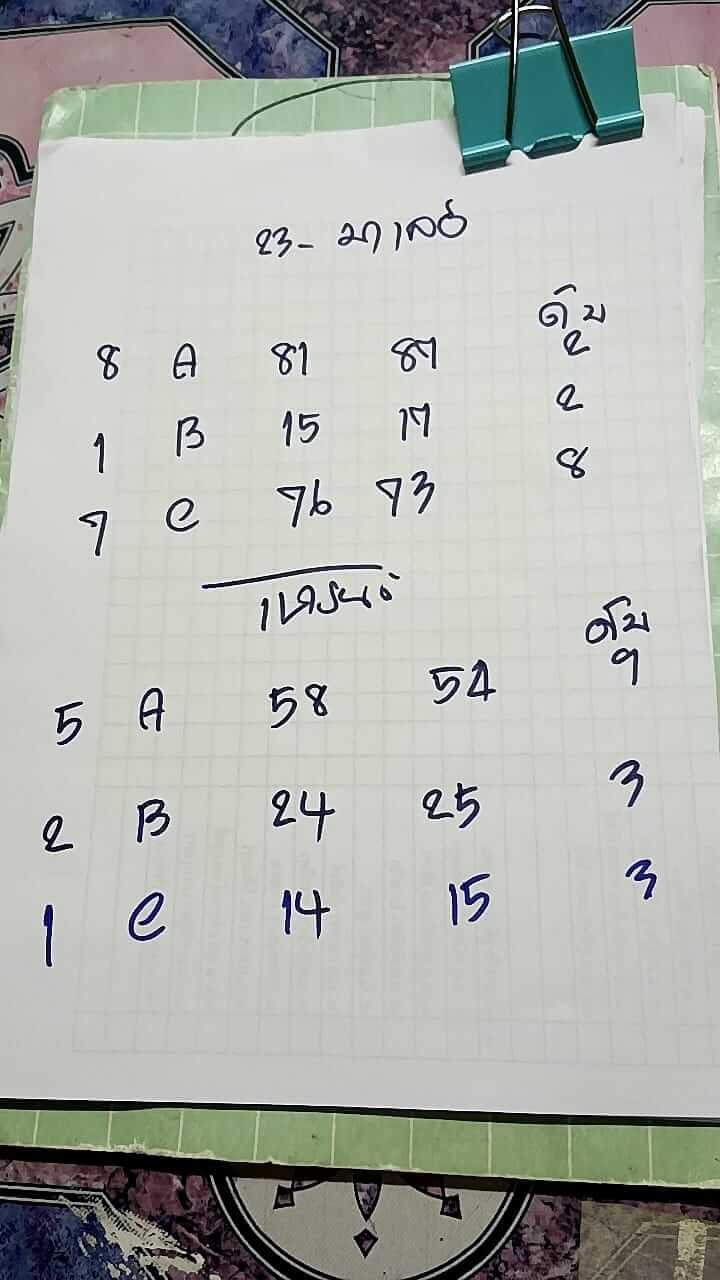 23- มาเลย์
ดับ
8 A 81 87 2
1 B 15 17 2
7 C 76 73 8
ดับ
5 A 58 54 9
2 B 24 25 3
1 C 14 15 3